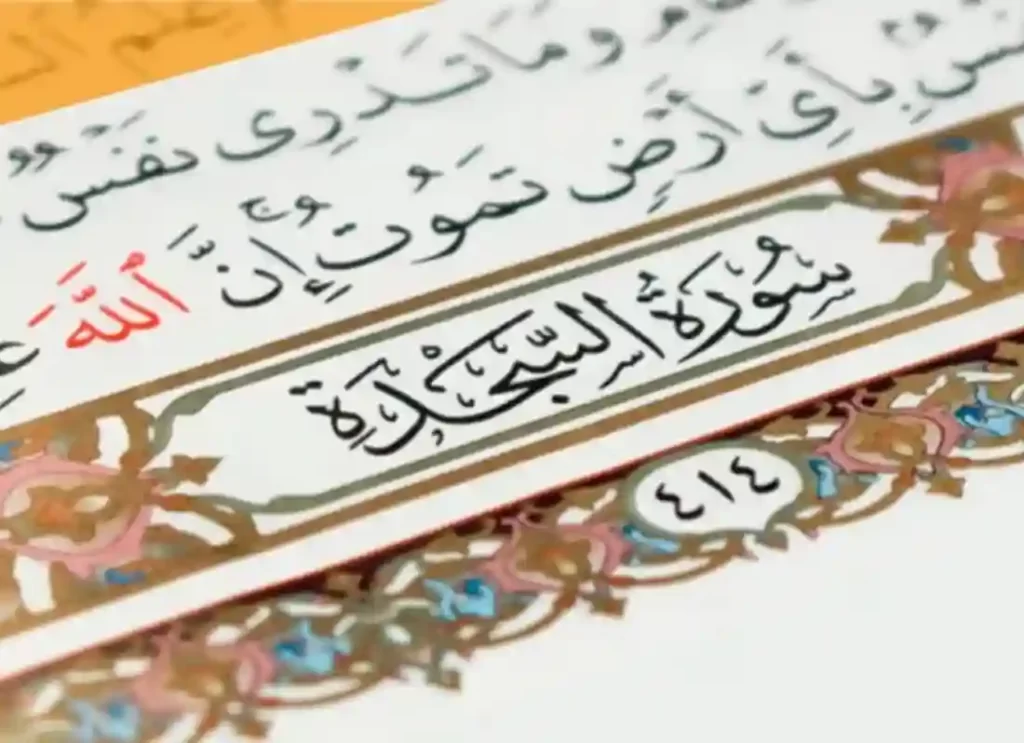 وَمَا تَدْرِى نَفْسٌ
نَفْسٌ بِأَىِّ أَرْضٍ تَمُوتُ ۚ إِنَّ ٱللَّهَ
سُورَةُ السَّجْدَةِ
٤١٤